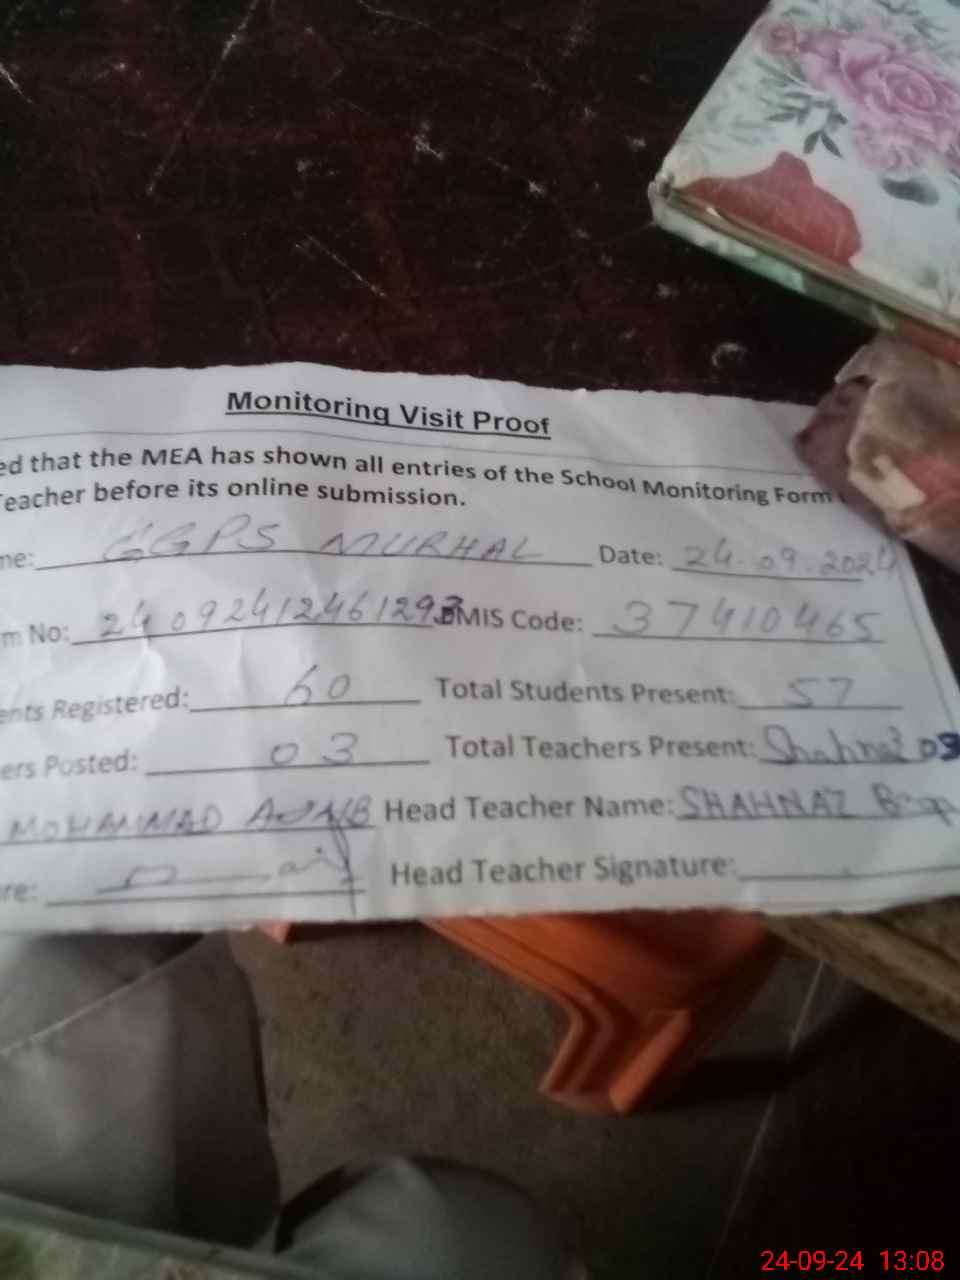 Monitoring Visit Proof
ed that the MEA has shown all entries of the School Monitoring Form
Teacher before its online submission.
me: GGPS MURHAL Date: 24.09.2024
m No: 24092412461293 EMIS Code: 37410465
ents Registered: 60 Total Students Present: 57
ers Posted: 03 Total Teachers Present: Shahnaz 03
MOHAMMAD Head Teacher Name: SHAHNAZ
re: Head Teacher Signature:
24-09-24 13:08